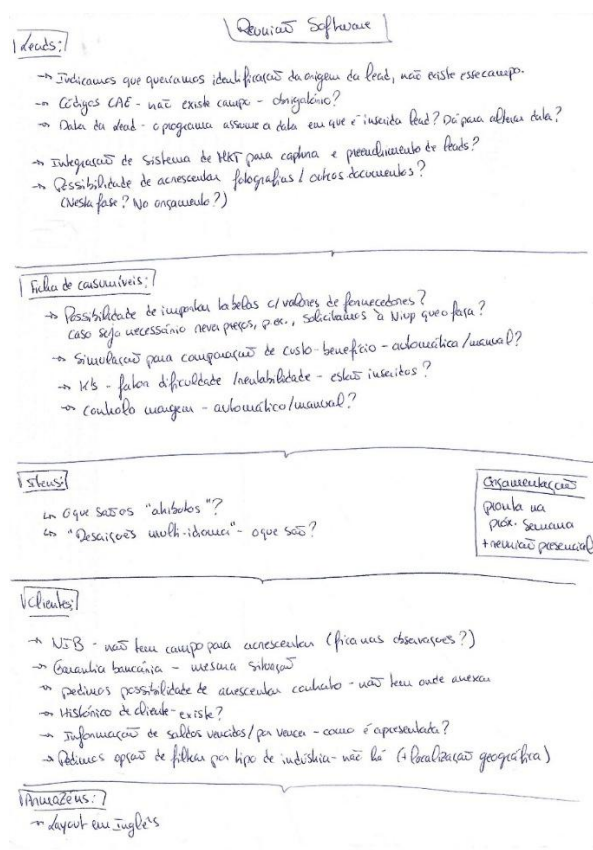 Reunião Software
Leads:
→ Indicamos que queríamos identificação da origem da lead, não existe esse campo.
→ Códigos CAE - não existe campo - obrigatório?
→ Data da lead - o programa assume a data em que é inserida lead? Dá para alterar data?
→ Integração de sistema de MKT para captura e preenchimento de leads?
→ Possibilidade de acrescentar fotografias / outros documentos?
(Nesta fase? No orçamento?)
Ficha de consumíveis:
→ Possibilidade de importar tabelas c/ valores de fornecedores?
caso seja necessário rever preços, p.ex., solicitamos à que o faça?
→ Simulação para comparação de custo-benefício - automática/manual?
→ K's - fator dificuldade / rentabilidade - estão inseridos?
→ controlo margem - automático/manual?
Itens:
↳ O que são os "atributos"?
↳ "Descrições multi-idioma" - o que são?
Orçamentação
pronta na
próx. semana
+ reunião presencial
Clientes:
→ NIB - não tem campo para acrescentar (fica nas observações?)
→ Garantia bancária - mesma situação
→ pedimos possibilidade de acrescentar contrato - não tem onde anexar
→ Histórico de cliente - existe?
→ Informação de saldos vencidos/por vencer - como é apresentada?
→ Pedimos opção de filtrar por tipo de indústria - não há (+ localização geográfica)
Armazéns:
→ Layout em Inglês